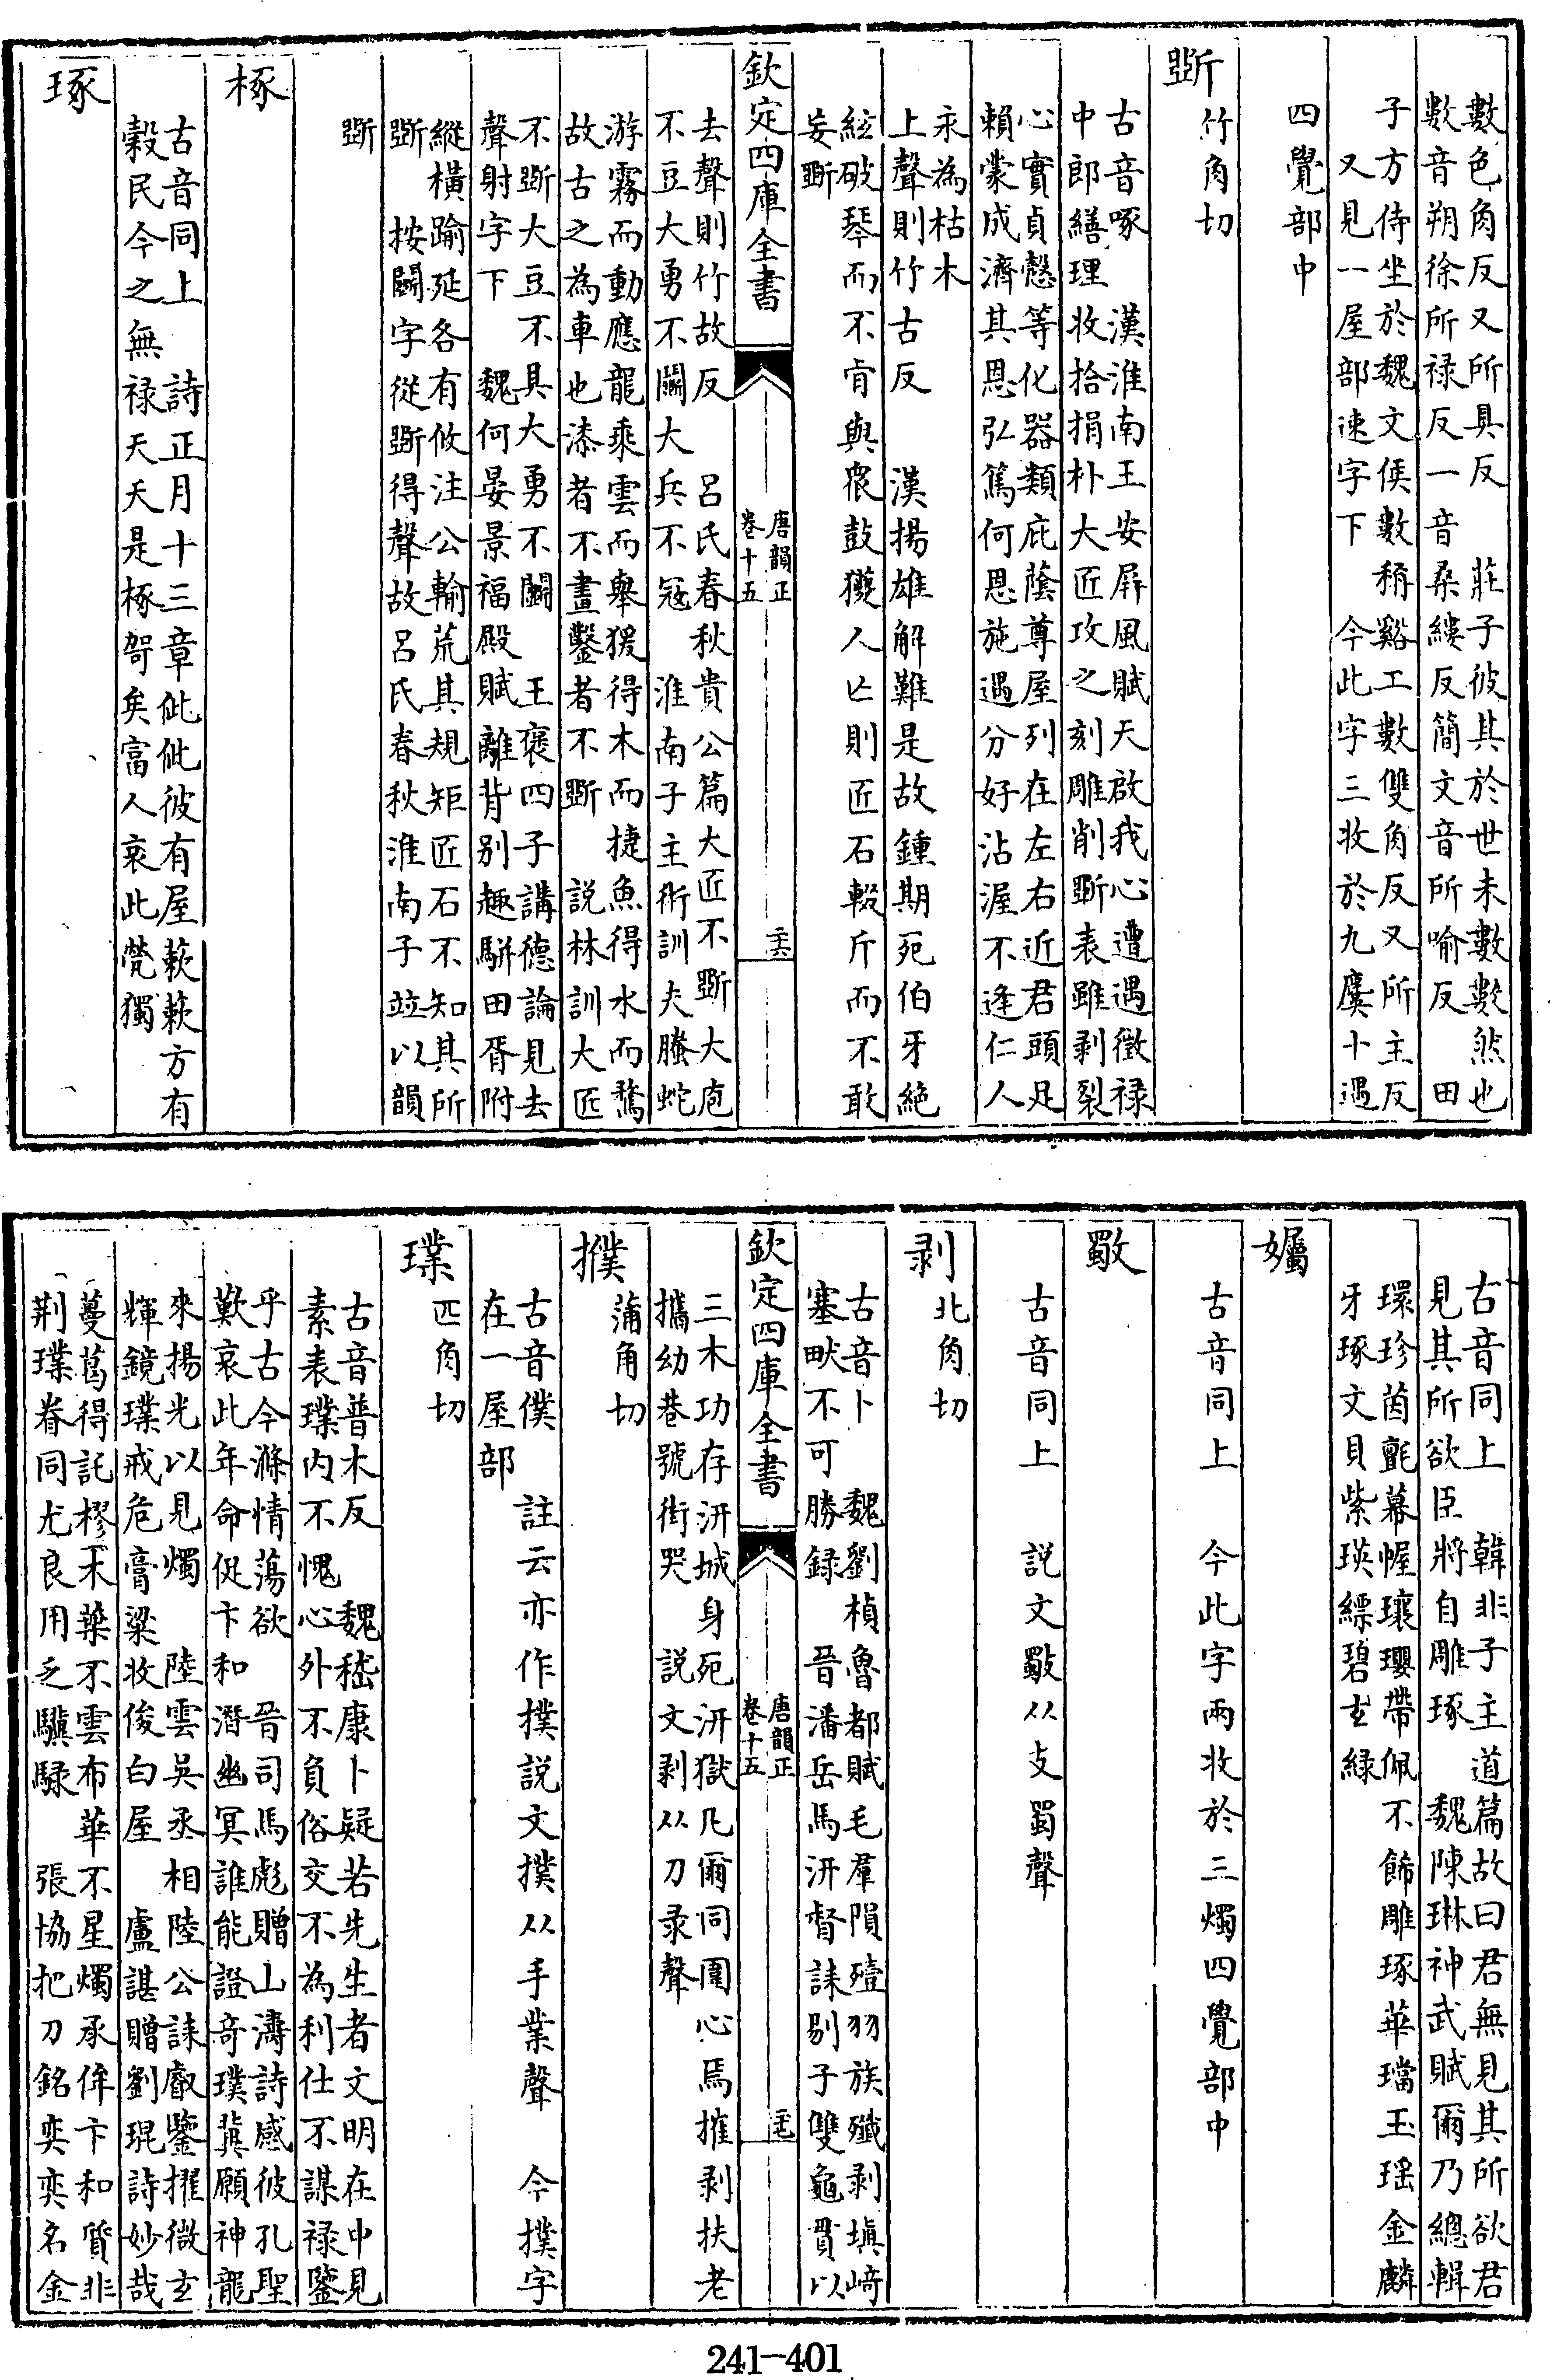 數色角反又所具反　莊子彼其於世未數數然也
數音朔徐所禄反一音桑縷反簡文音所喻反　田
子方侍坐於魏文侯數稱谿工數雙角反又所主反
又見一屋部速字下　今此字三收於九麌十遇
四覺部中
斲竹角切
古音啄　漢淮南王安屏風賦天啟我心遭遇徵禄
中郎繕理收拾捐朴大匠攻之刻雕削斲表雖剥裂
心實貞慤等化器類庇蔭尊屋列在左右近君頭足
賴蒙成濟其恩弘篤何恩施遇分好沾渥不逢仁人
永為枯木
上聲則竹古反　漢揚雄解難是故鍾期死伯牙絶
絃破琴而不肯與衆鼓獿人亡則匠石輟斤而不敢
妄斲
欽定四庫全書
唐韻正
卷十五
二十六
去聲則竹故反　呂氏春秋貴公篇大匠不斲大庖
不豆大勇不鬭大兵不寇　淮南子主術訓夫螣蛇
游霧而動應龍乘雲而舉猨得木而捷魚得水而騖
故古之為車也漆者不畫鑿者不斲　説林訓大匠
不斲大豆不具大勇不鬭　王褒四子講德論見去
聲射字下　魏何晏景福殿賦離背别趣駢田胥附
縱橫踰延各有攸注公輸荒其規矩匠石不知其所
斲　按鬭字從斲得聲故呂氏春秋淮南子竝以韻
斲
椓
古音同上　詩正月十三章佌佌彼有屋蔌蔌方有
穀民今之無禄天夭是椓哿矣富人哀此㷀獨
琢
古音同上　韓非子主道篇故曰君無見其所欲君
見其所欲臣將自雕琢　魏陳琳神武賦爾乃總輯
環珍茵氈幕幄瓖瓔帶佩不飾雕琢華璫玉瑶金麟
牙琢文貝紫瑛縹碧玄緑
斸
古音同上　今此字兩收於三燭四覺部中
斀
古音同上　説文斀从攴蜀聲
剥北角切
古音卜　魏劉楨魯都賦毛羣隕殪羽族殲剥塡﨑
塞畎不可勝録　晉潘岳馬汧督誄剔子雙龜貫以
欽定四庫全書
唐韻正
卷十五
二十七
三木功存汧城身死汧獄凡爾同圍心焉摧剥扶老
攜幼巷號街哭　説文剥从刀彔聲
撲蒲角切
古音僕　註云亦作撲説文撲从手業聲　今撲字
在一屋部
璞匹角切
古音普木反　魏嵇康卜疑若先生者文明在中見
素表璞内不愧心外不負俗交不為利仕不謀禄鑒
乎古今滌情蕩欲　晉司馬彪贈山濤詩感彼孔聖
歎哀此年命促卞和潛幽冥誰能證奇璞冀願神龍
來揚光以見燭　陸雲吳丞相陸公誄叡鑒擢微玄
輝鏡璞戒危膏粱收俊白屋　盧諶贈劉琨詩妙哉
蔓葛得託樛木葉不雲布華不星燭承侔卞和質非
荆璞眷同尤良用乏驥騄　張協把刀銘奕奕名金
241-401